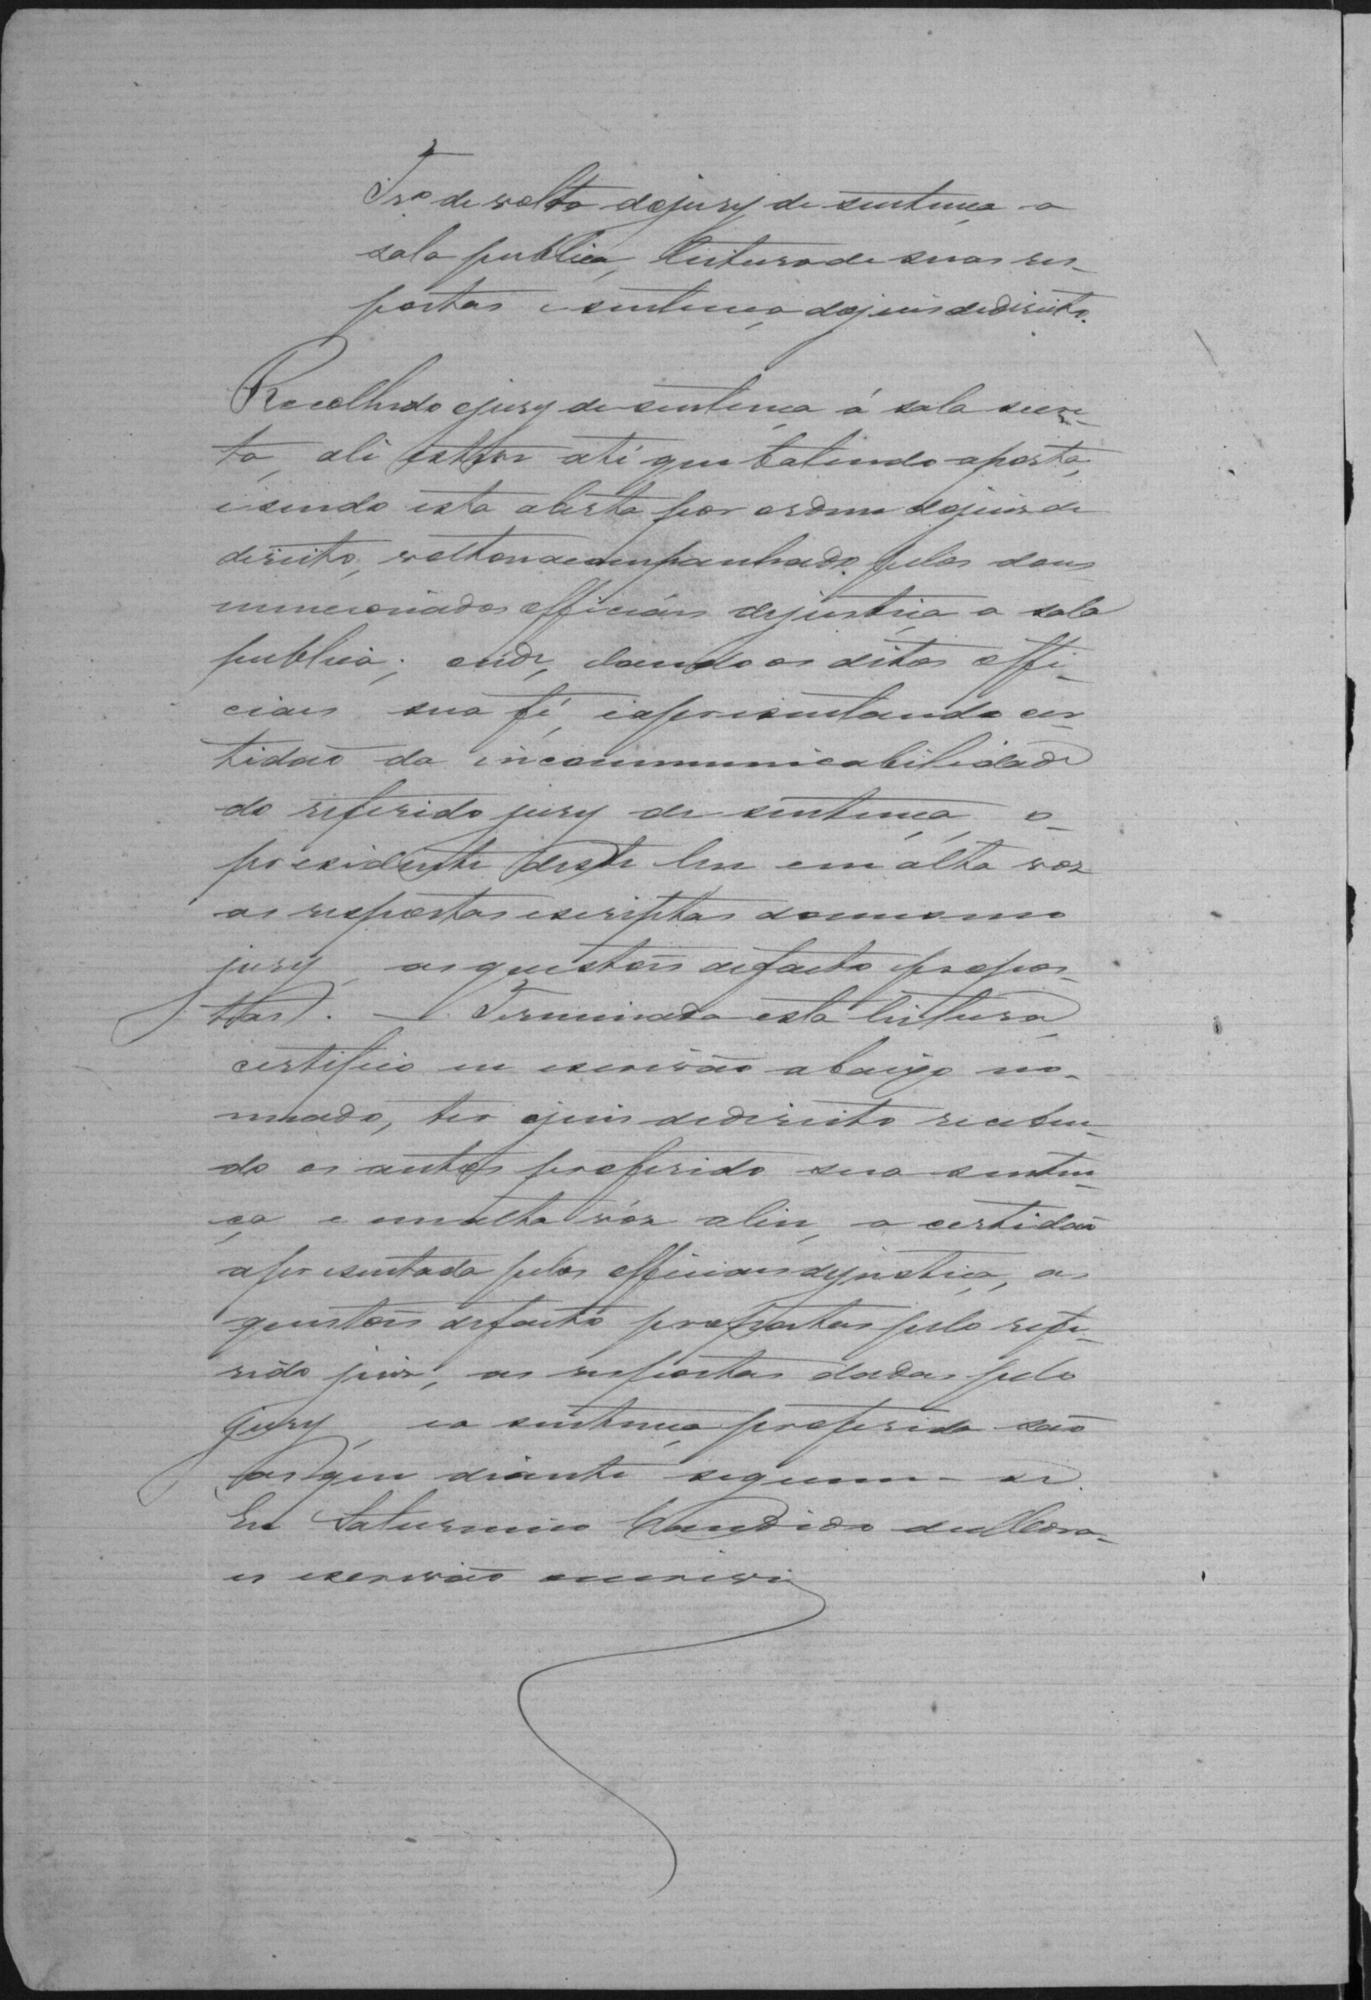 Tr.º de volta do jury de sentença a
sala publica, leitura de suas res-
postas e sentença do juis de direito.
Recolhido o jury de sentença á sala secre-
ta, ali esteve até que batendo a porta,
e sendo esta aberta por ordem do juis de
direito, voltou acompanhado pelos dous
mencionados officiáes de justiça a sala
publica; onde, dando os ditos offi-
ciaes sua fé, e apresentando cer-
tidão da incommunicabilidade
do referido jury de sentença, o
presidente deste leu em alta voz
as respostas escriptas do mesmo
jury, as questões de facto propos-
tas. — Terminada esta leitura,
certifico eu escrivão abaixo no-
meado, ter o juis de direito receben-
do os autos proferido sua senten-
ça e em alta vóz a leu, a certidão
apresentada pelos officiaes de justiça, as
questões de facto propostas pelo refe-
rido juiz, as respostas dadas pelo
jury, e a sentença proferida são
as que diante seguem-se.
Eu Saturnino Candido de Mora-
es escrivão escrevi